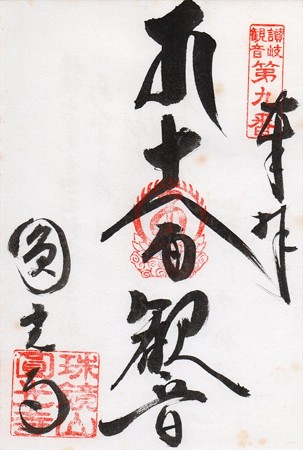 讃岐
観音
第九番
奉拝
十一面観音
圓光寺
珠鏡山
圓光寺